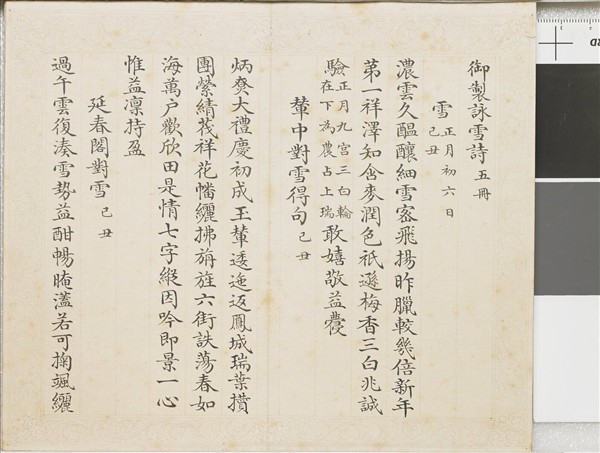 御製詠雪詩 五冊
雪 正月初六日 己丑
濃雲久醖釀細雪密飛揚昨臘較幾倍新年
苐一祥澤知含麥潤色祇遜梅香三白兆誠
驗 正月九宮三白輪在下為農占上瑞 敢嬉敬益蘉
輦中對雪得句 己丑
炳大禮慶初成玉輦逶迤返鳳城瑞葉攢
團縈綪茷祥花幡纚拂旃旌六街詄蕩春如
海萬户歡欣田是情七字縱因吟即景一心
惟益凛持盈
延春閣對雪 己丑
過午雲復湊雪勢益酣暢晻若可掬颯纚